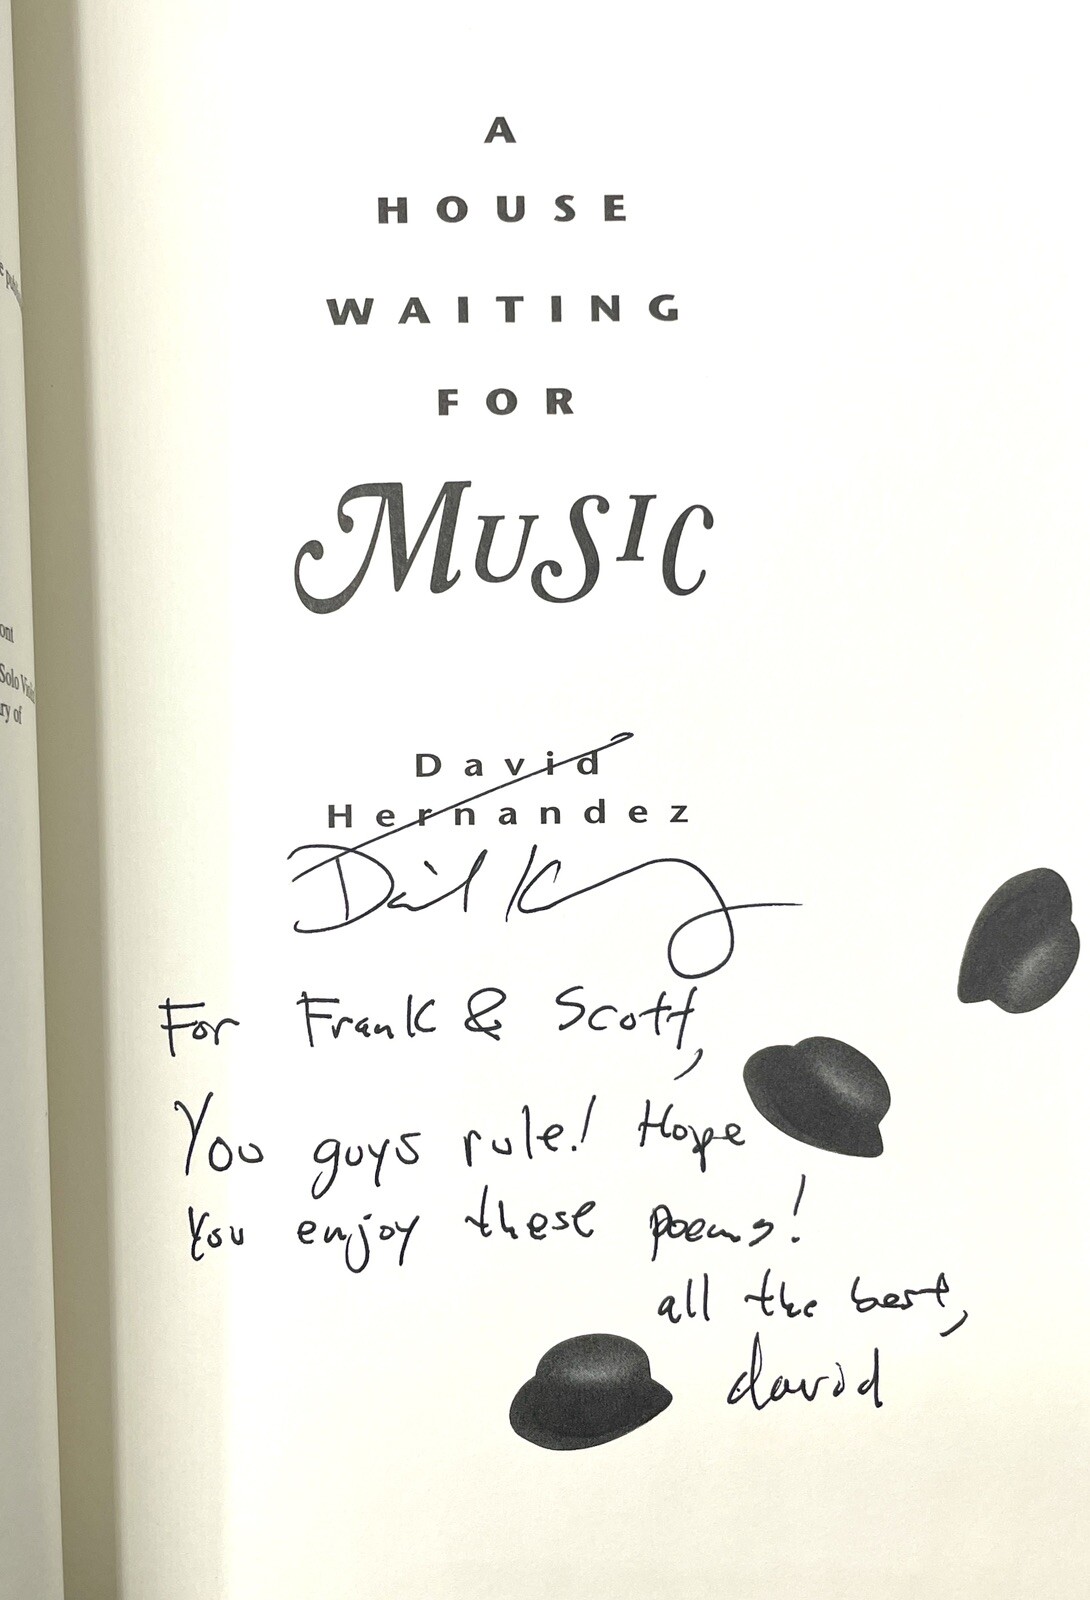 A
HOUSE
WAITING
FOR
MUSIC
David
Hernandez
For Frank & Scott,
You guys rule! Hope
you enjoy these poems!
all the best,
david
ont
Solo
ry of